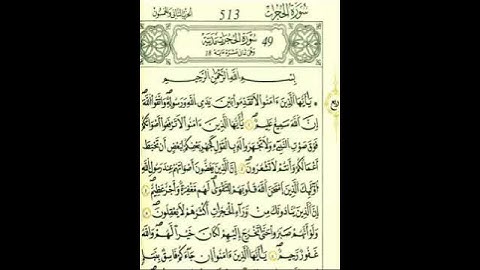 سُورَةُ الحُجُرَاتِ 513 الحزب الثاني والخمسون
سُورَةُ الحُجُرَاتِ مَدَنِيَّة 49
وهي ثماني عشرة آية 18
بِسْمِ اللَّهِ الرَّحْمَٰنِ الرَّحِيمِ
* يَٰأَيُّهَا الَّذِينَ ءَامَنُوا لَا تُقَدِّمُوا بَيْنَ يَدَيِ اللَّهِ وَرَسُولِهِ وَاتَّقُوا اللَّهَ ربع
إِنَّ اللَّهَ سَمِيعٌ عَلِيمٌ ۝ يَٰأَيُّهَا الَّذِينَ ءَامَنُوا لَا تَرْفَعُوا أَصْوَاتَكُمْ
فَوْقَ صَوْتِ النَّبِيءِ وَلَا تَجْهَرُوا لَهُ بِالْقَوْلِ كَجَهْرِ بَعْضِكُمْ لِبَعْضٍ أَن تَحْبَطَ
أَعْمَالُكُمْ وَأَنتُمْ لَا تَشْعُرُونَ ۝ إِنَّ الَّذِينَ يَغُضُّونَ أَصْوَاتَهُمْ عِندَ رَسُولِ اللَّهِ
أُوْلَٰئِكَ الَّذِينَ امْتَحَنَ اللَّهُ قُلُوبَهُمْ لِلتَّقْوَىٰ لَهُم مَّغْفِرَةٌ وَأَجْرٌ عَظِيمٌ ۝
إِنَّ الَّذِينَ يُنَادُونَكَ مِن وَرَاءِ الْحُجُرَاتِ أَكْثَرُهُمْ لَا يَعْقِلُونَ ۝
وَلَوْ أَنَّهُمْ صَبَرُوا حَتَّىٰ تَخْرُجَ إِلَيْهِمْ لَكَانَ خَيْرًا لَّهُمْ وَاللَّهُ
غَفُورٌ رَّحِيمٌ ۝ يَٰأَيُّهَا الَّذِينَ ءَامَنُوا إِن جَاءَكُمْ فَاسِقٌ بِنَبَإٍ